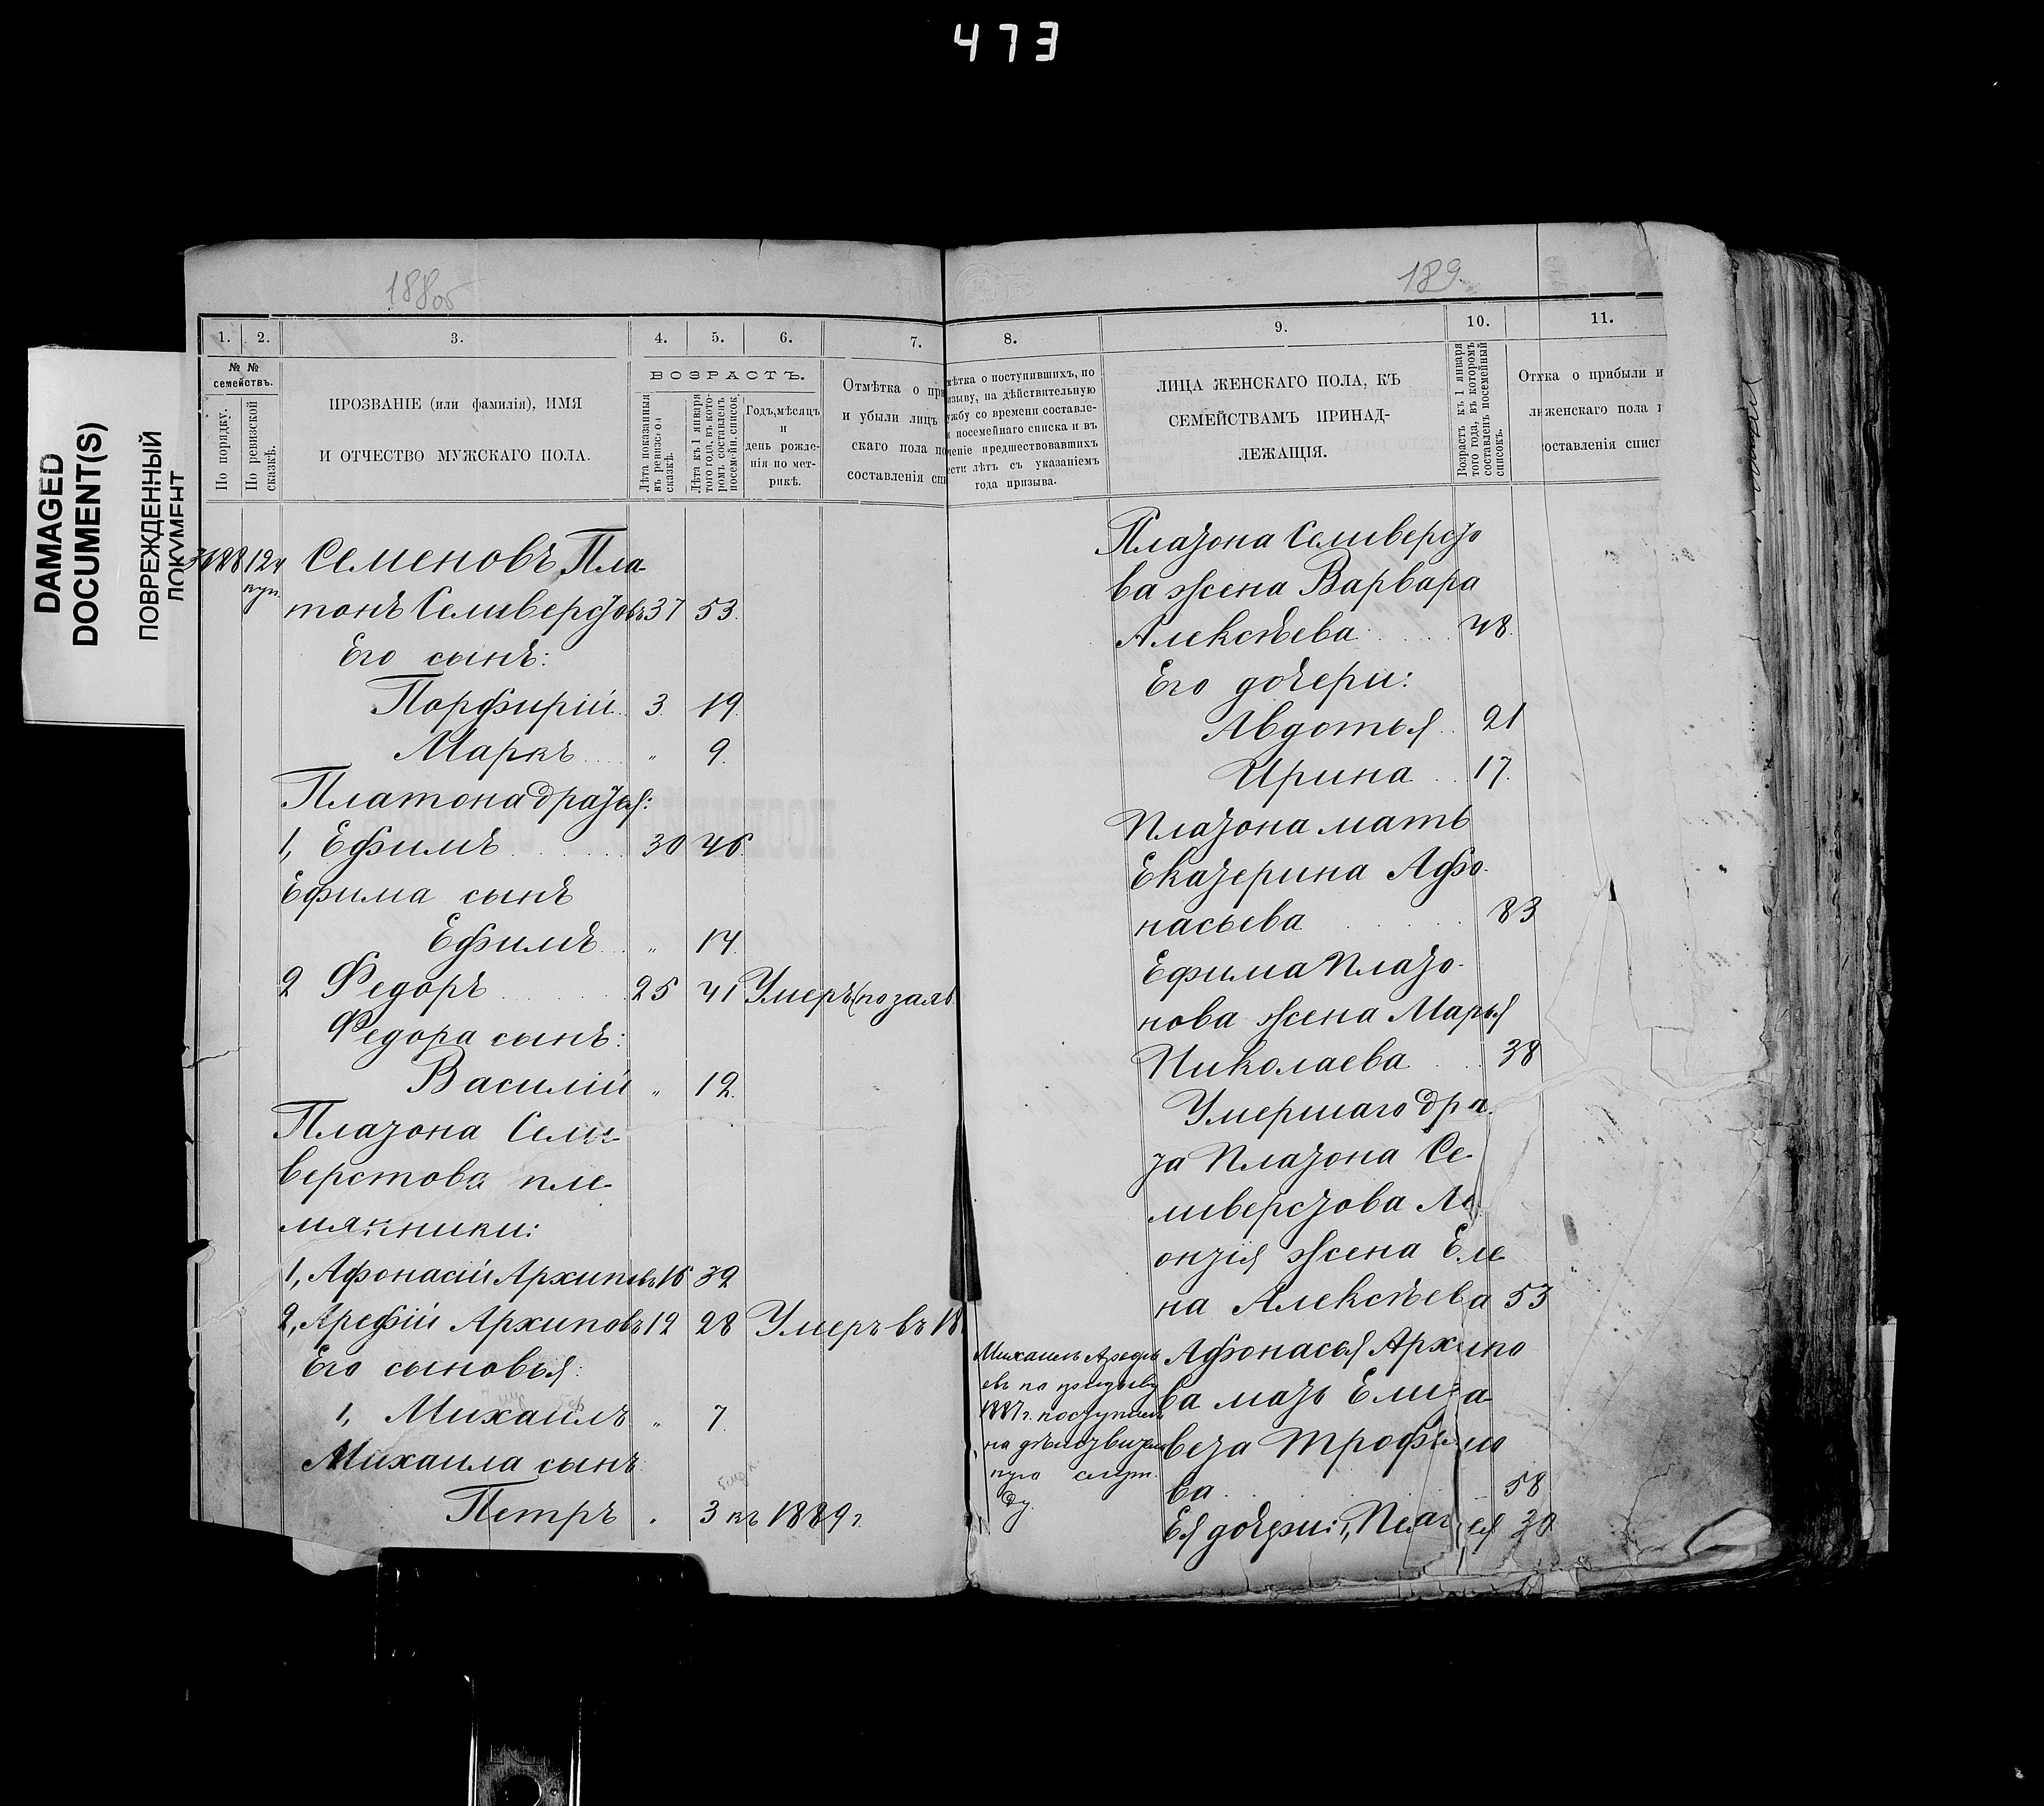 473
DAMAGED
DOCUMENT(S)
ПОВРЕЖДЕННЫЙ
ДОКУМЕНТ
188об
1. 2. 3. 4. 5. 6. 7.
№ №
семействъ.
По порядку.
По ревизской
сказкѣ.
ПРОЗВАНІЕ (или фамилія), ИМЯ
И ОТЧЕСТВО МУЖСКАГО ПОЛА.
ВОЗРАСТЪ.
Лѣта показанныя
въ ревизской
сказкѣ.
Лѣта къ 1 января
того года, въ кото-
ромъ составленъ
посемейн. список.
Годъ, мѣсяцъ
и
день рожде-
нія по мет-
рикѣ.
Отмѣтка о при
и убыли лицъ
скаго пола по
составленія спи
128 124 Семеновъ Пла-
тонъ Селиверстовъ 37 53.
Его сынъ:
Порфирій 3. 19.
Маркъ „ 9.
Платона братья:
1, Ефимъ 30 46.
Ефима сынъ
Ефимъ „ 14.
2 Федоръ 25 41 Умеръ
Федора сынъ:
Василій „ 12.
Платона Сели-
верстова пле-
мянники:
1, Афонасій Архиповъ 16 32
2, Арефій Архиповъ 12 28 Умеръ въ 18
Его сыновья:
1, Михаилъ „ 7.
Михаила сынъ
Петръ . 3 къ 1889 г.
189.
8. 9. 10. 11.
мѣтка о поступившихъ, по
изыву, на дѣйствительную
ужбу со времени составле-
я посемейнаго списка и въ
ченіе предшествовавшихъ
ести лѣтъ съ указаніемъ
года призыва.
ЛИЦА ЖЕНСКАГО ПОЛА, КЪ
СЕМЕЙСТВАМЪ ПРИНАД-
ЛЕЖАЩІЯ.
Возрастъ къ 1 января
того года, въ которомъ
составленъ посемейный
списокъ.
От тка о прибыли и
ли женскаго пола
составленія спис
Платона Селиверсто
ва жена Варвара
Алексѣева 48.
Его дочери:
Авдотья 21
Ирина 17.
Платона мать
Екатерина Афо-
насьева 83
Ефима Плато-
нова жена Марья
Николаева 38
Умершаго бра
та Платона Се-
ливерстова Ле
онтія жена Еле
на Алексѣева 53
Афонасья Архипо
ва мать Елиза
вета Трофимо
ва 58
Ея дочери: 1, Пелагея
Михаилъ Арефь
евъ по призыву
1887 г. поступилъ
на дѣйствитель
ную служ-
бу.